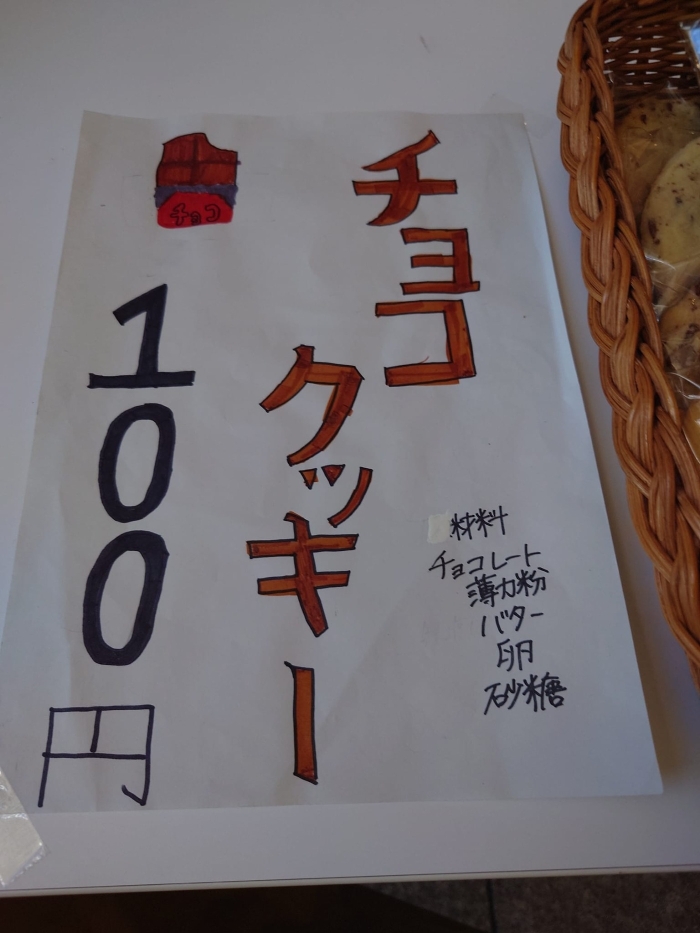 チョコ
クッキー
100円
チョコ
材料
チョコレート
薄力粉
バター
卵
砂糖